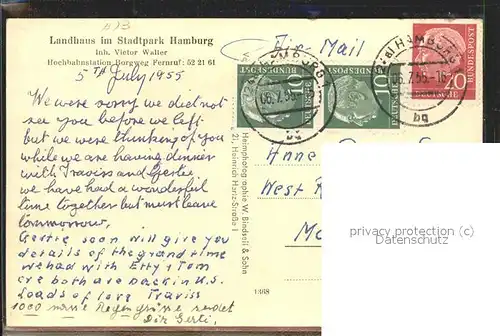 A13
Landhaus im Stadtpark Hamburg
Inh. Victor Waller
Hochbahnstation Borgweg Fernruf: 52 21 61
5TH July 1955
We were sorry we did not
see you before we left
but we were thinking of you
while we are having dinner
with Traviss and Gertie.
we have had a wonderful
time together but must leave
tommorrow.
Gertie soon will give you
details of the grand time
we had with Etty & Tom
are both are back in U.S.
Loads of love Traviss
1000 Regengrüsse sendet
Dir Gerti.
Air-Mail
HAMBURG
06.7.55
bg
10
DEUTSCHE BUNDESPOST
10
DEUTSCHE BUNDESPOST
HAMBURG
06.7.55.-16
bg
20
DEUTSCHE BUNDESPOST
Heimphotographie W. Bindseil & Sohn
21, Heinrich Hertz-Straße
1368
Anne
West
privacy protection
Datenschutz